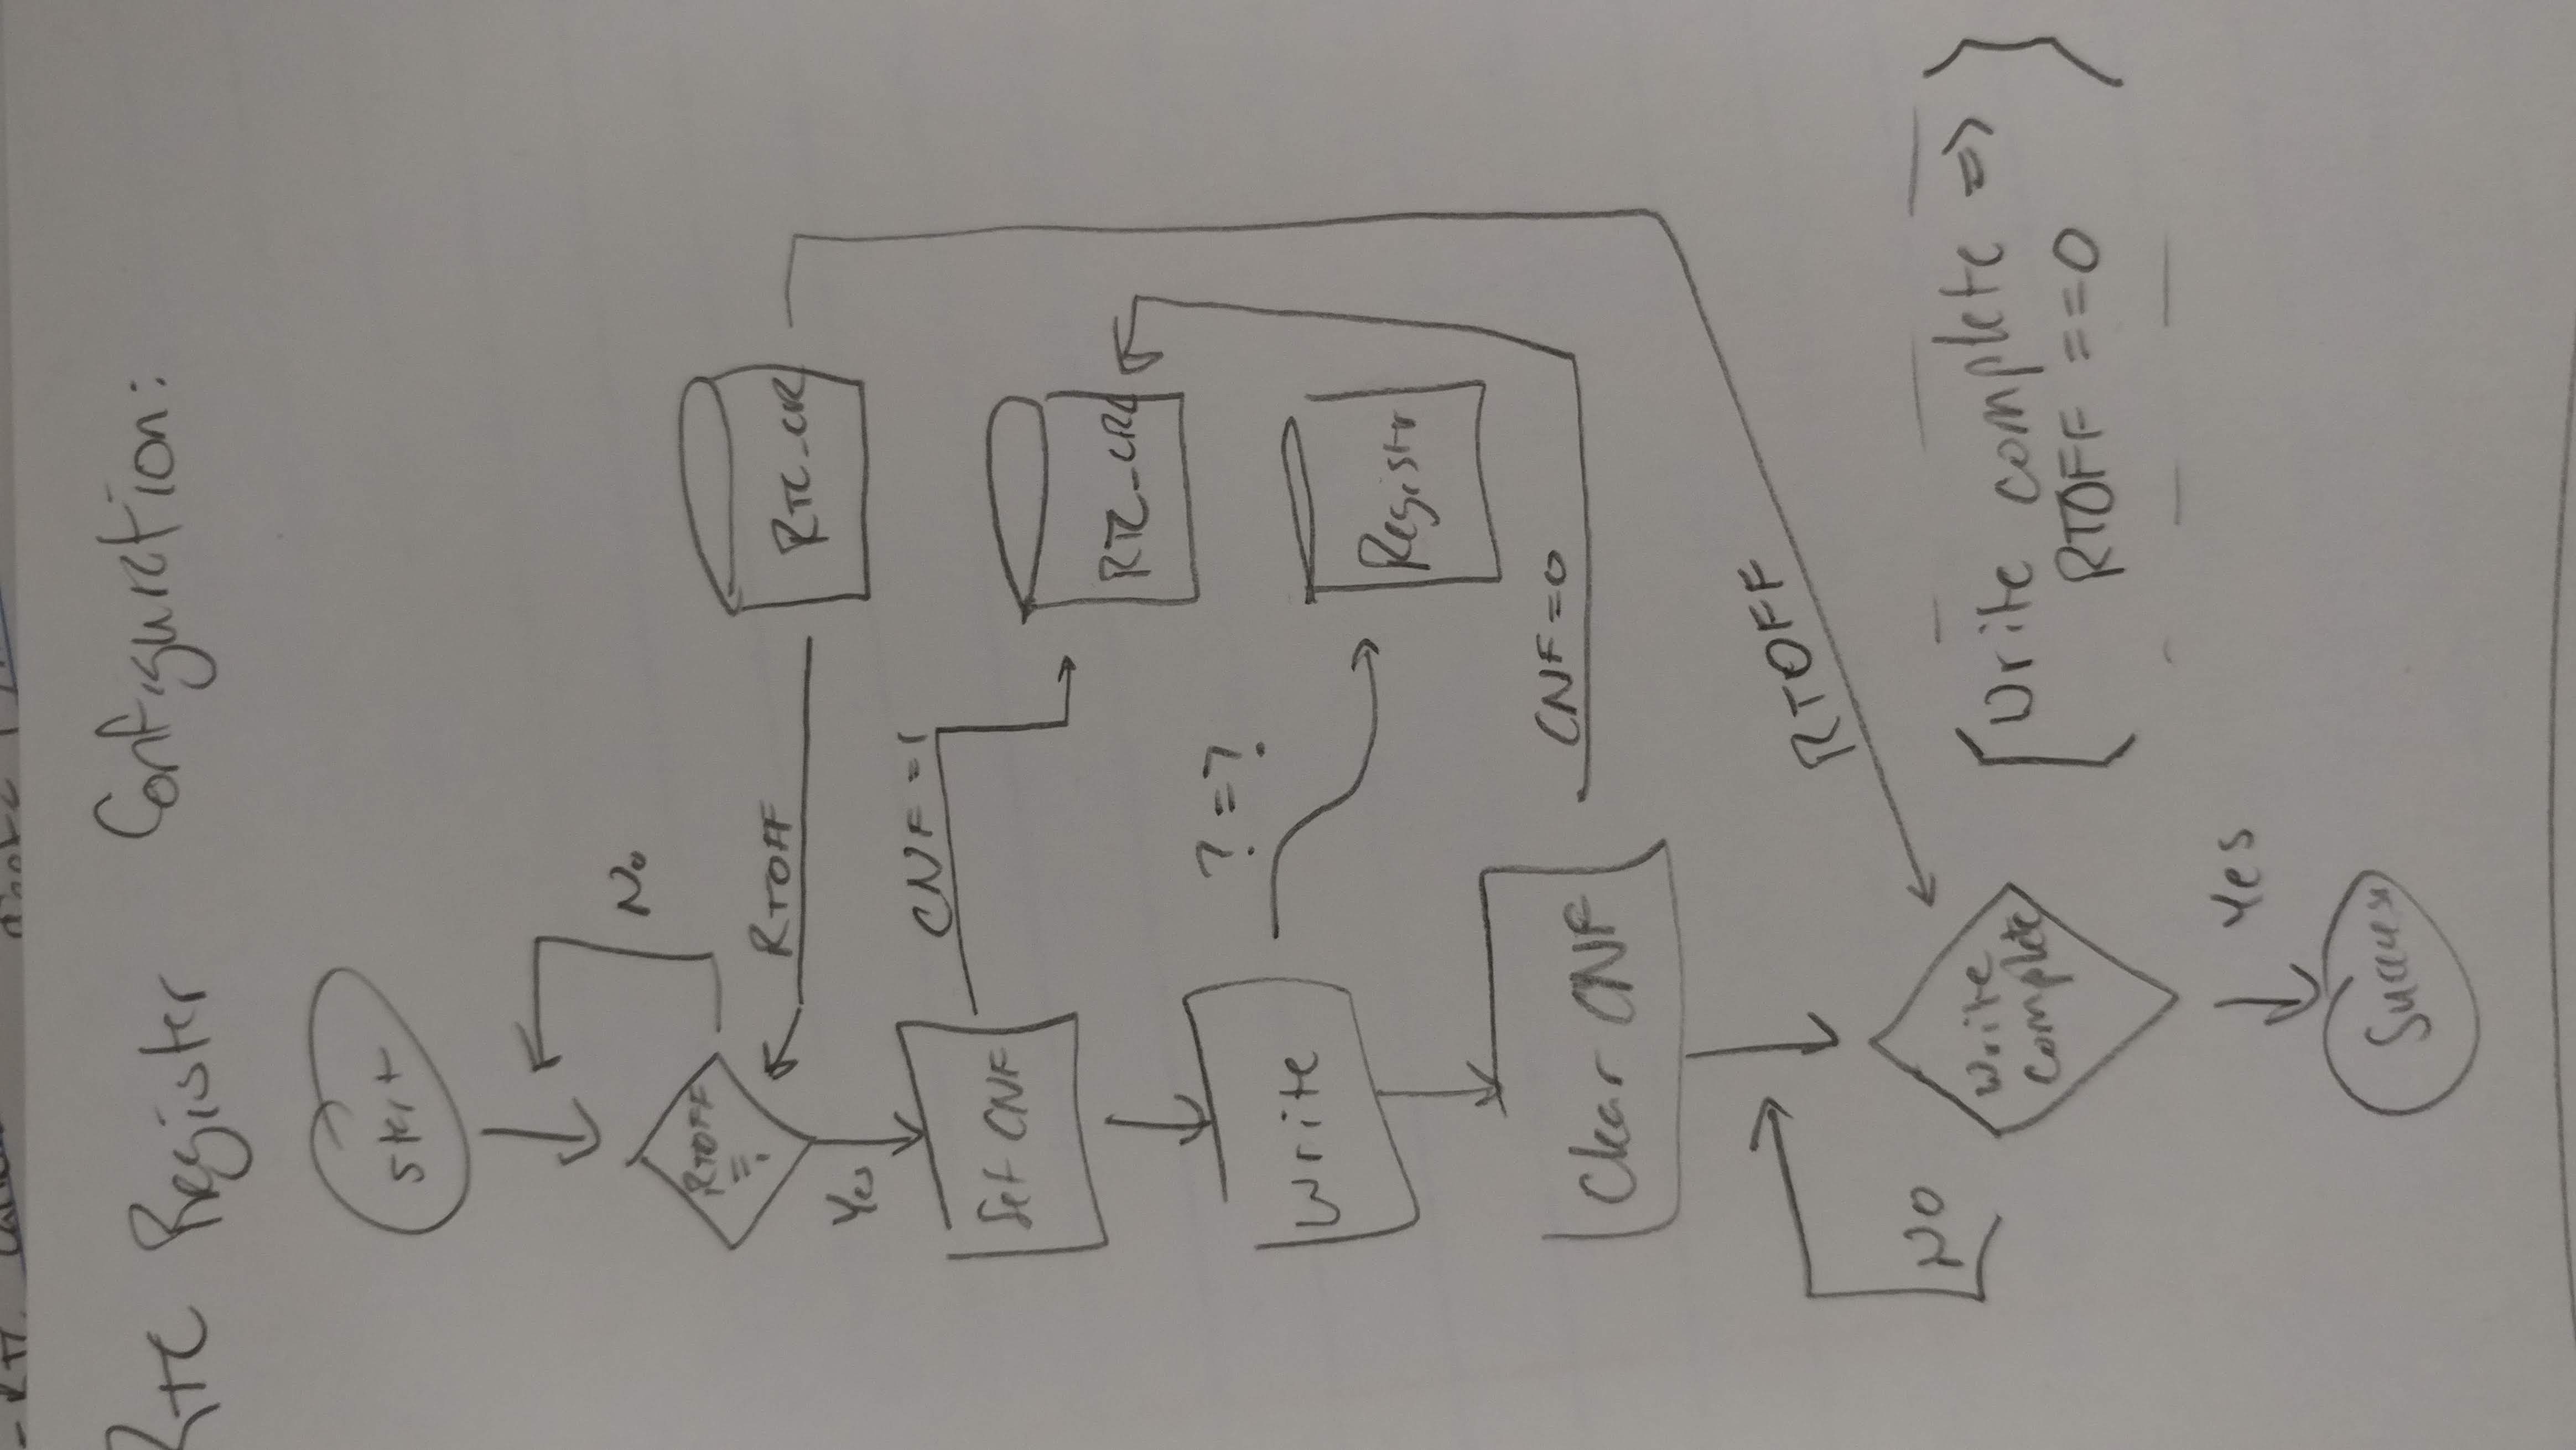 Rtc Register Configuration:
Start
No
RTOFF
=
RTOFF
RTC_CR
Yes
CNF = 1
Set CNF
RTC_CRL
? = ?
Write
Register
CNF = 0
Clear CNF
RTOFF
NO
Write
complete
Write complete =>
RTOFF == 0
Yes
Success